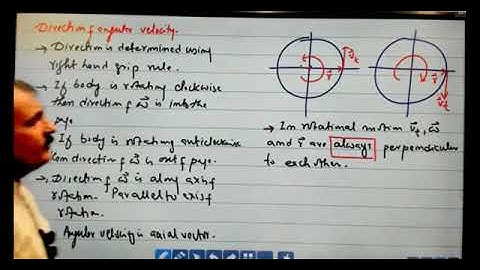 Direction of angular velocity.
→ Direction is determined using
right hand grip rule.
→ If body is rotating clockwise
then direction of ω⃗ is into the
page.
If body is rotating anticlockwise
then direction of ω⃗ is out of page.
→ Direction of ω⃗ is along axis of
rotation. Parallel to axis of
rotation.
Angular velocity is axial vector.
r⃗
v⃗t
r⃗
v⃗t
→ In rotational motion v⃗t, ω⃗
and r⃗ are always perpendicular
to each other.